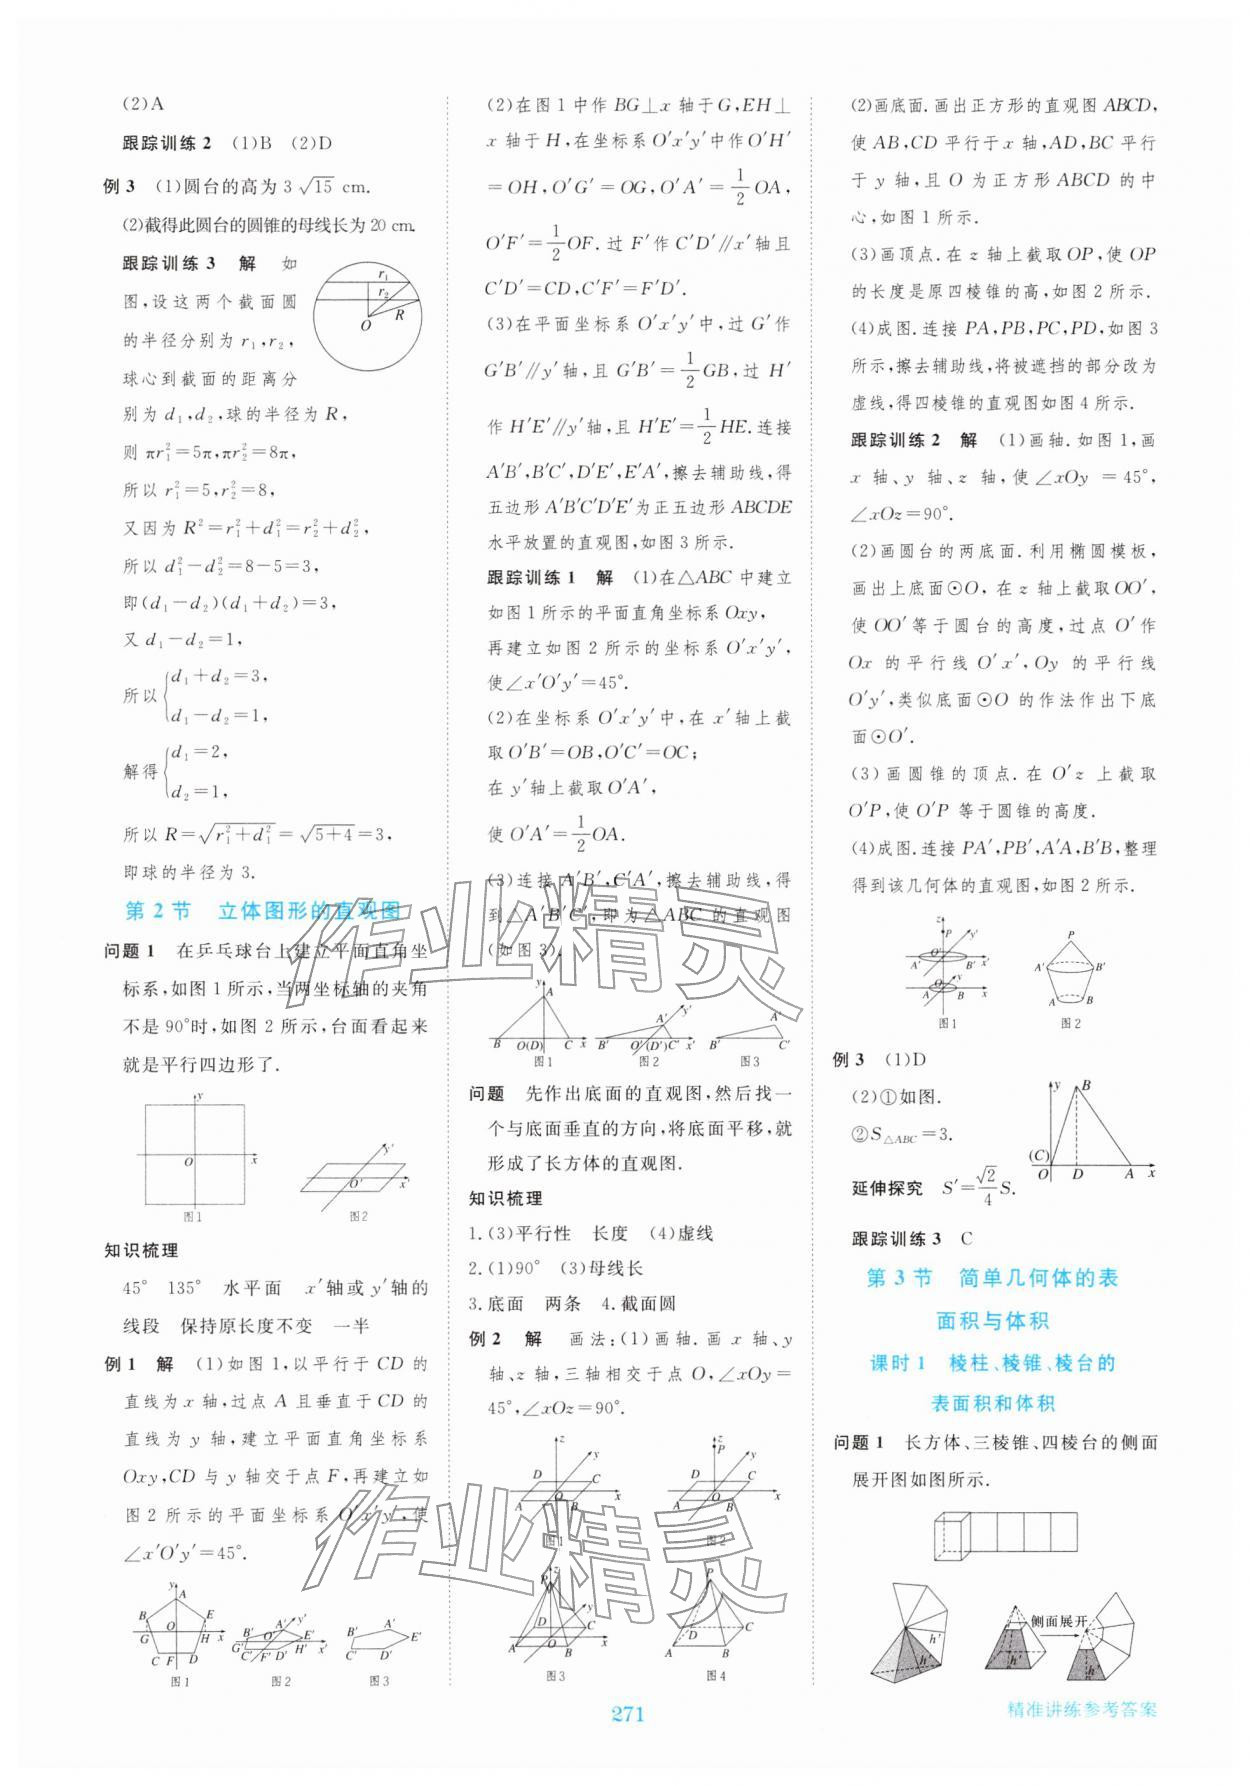 (2)A
跟踪训练2 (1)B (2)D
例3 (1)圆台的高为3√15 cm.
(2)截得此圆台的圆锥的母线长为20 cm.
跟踪训练3 解 如
图,设这两个截面圆
的半径分别为r₁,r₂,
球心到截面的距离分
别为d₁,d₂,球的半径为R,
则πr₁²=5π,πr₂²=8π,
所以r₁²=5,r₂²=8,
又因为R²=r₁²+d₁²=r₂²+d₂²,
所以d₁²-d₂²=8-5=3,
即(d₁-d₂)(d₁+d₂)=3,
又d₁-d₂=1,
所以{d₁+d₂=3,
d₁-d₂=1,
解得{d₁=2,
d₂=1,
所以R=√(r₁²+d₁²)=√(5+4)=3,
即球的半径为3.
r₁
r₂
O R
第2节 立体图形的直观图
问题1 在乒乓球台上建立平面直角坐
标系,如图1所示,当两坐标轴的夹角
不是90°时,如图2所示,台面看起来
就是平行四边形了.
y
O x
图1
y′
O′ x′
图2
知识梳理
45° 135° 水平面 x′轴或y′轴的
线段 保持原长度不变 一半
例1 解 (1)如图1,以平行于CD的
直线为x轴,过点A且垂直于CD的
直线为y轴,建立平面直角坐标系
Oxy,CD与y轴交于点F,再建立如
图2所示的平面坐标系O′x′y′,使
∠x′O′y′=45°.
y A
B O E
G H x
C F D
图1
y′
B′ A′ E′
G′ O′ H′ x′
C′ F′ D′
图2
B′ A′
E′
C′ D′
图3
(2)在图1中作BG⊥x轴于G,EH⊥
x轴于H,在坐标系O′x′y′中作O′H′
=OH,O′G′=OG,O′A′=1/2OA,
O′F′=1/2OF.过F′作C′D′∥x′轴且
C′D′=CD,C′F′=F′D′.
(3)在平面坐标系O′x′y′中,过G′作
G′B′∥y′轴,且G′B′=1/2GB,过H′
作H′E′∥y′轴,且H′E′=1/2HE.连接
A′B′,B′C′,D′E′,E′A′,擦去辅助线,得
五边形A′B′C′D′E′为正五边形ABCDE
水平放置的直观图,如图3所示.
跟踪训练1 解 (1)在△ABC中建立
如图1所示的平面直角坐标系Oxy,
再建立如图2所示的坐标系O′x′y′,
使∠x′O′y′=45°.
(2)在坐标系O′x′y′中,在x′轴上截
取O′B′=OB,O′C′=OC;
在y′轴上截取O′A′,
使O′A′=1/2OA.
(3)连接A′B′,C′A′,擦去辅助线,得
到△A′B′C′,即为△ABC的直观图
(如图3).
y
A
B O(D) C x
图1
y′
A′
B′ O′(D′)C′ x′
图2
A′
B′ C′
图3
问题 先作出底面的直观图,然后找一
个与底面垂直的方向,将底面平移,就
形成了长方体的直观图.
知识梳理
1.(3)平行性 长度 (4)虚线
2.(1)90° (3)母线长
3.底面 两条 4.截面圆
例2 解 画法:(1)画轴.画x轴、y
轴、z轴,三轴相交于点O,∠xOy=
45°,∠xOz=90°.
z
y
D C
A O B x
图1
z
P y
D C
A O B x
图2
z
P
y
D C
A O B x
图3
P
D C
A B
图4
(2)画底面.画出正方形的直观图ABCD,
使AB,CD平行于x轴,AD,BC平行
于y轴,且O为正方形ABCD的中
心,如图1所示.
(3)画顶点.在z轴上截取OP,使OP
的长度是原四棱锥的高,如图2所示.
(4)成图.连接PA,PB,PC,PD,如图3
所示,擦去辅助线,将被遮挡的部分改为
虚线,得四棱锥的直观图如图4所示.
跟踪训练2 解 (1)画轴.如图1,画
x轴、y轴、z轴,使∠xOy=45°,
∠xOz=90°.
(2)画圆台的两底面.利用椭圆模板,
画出上底面⊙O,在z轴上截取OO′,
使OO′等于圆台的高度,过点O′作
Ox的平行线O′x′,Oy的平行线
O′y′,类似底面⊙O的作法作出下底
面⊙O′.
(3)画圆锥的顶点.在O′z上截取
O′P,使O′P等于圆锥的高度.
(4)成图.连接PA′,PB′,A′A,B′B,整理
得到该几何体的直观图,如图2所示.
z
P y′
A′ O′ B′ x′
y
A O B x
图1
P
A′ B′
A B
图2
例3 (1)D
(2)①如图.
②S△ABC=3.
y B
(C)
O D A x
延伸探究 S′=√2/4 S.
跟踪训练3 C
第3节 简单几何体的表
面积与体积
课时1 棱柱、棱锥、棱台的
表面积和体积
问题1 长方体、三棱锥、四棱台的侧面
展开图如图所示.
h′
h′
侧面展开
h′
h′
271
精准讲练参考答案
作业精灵
作业精灵